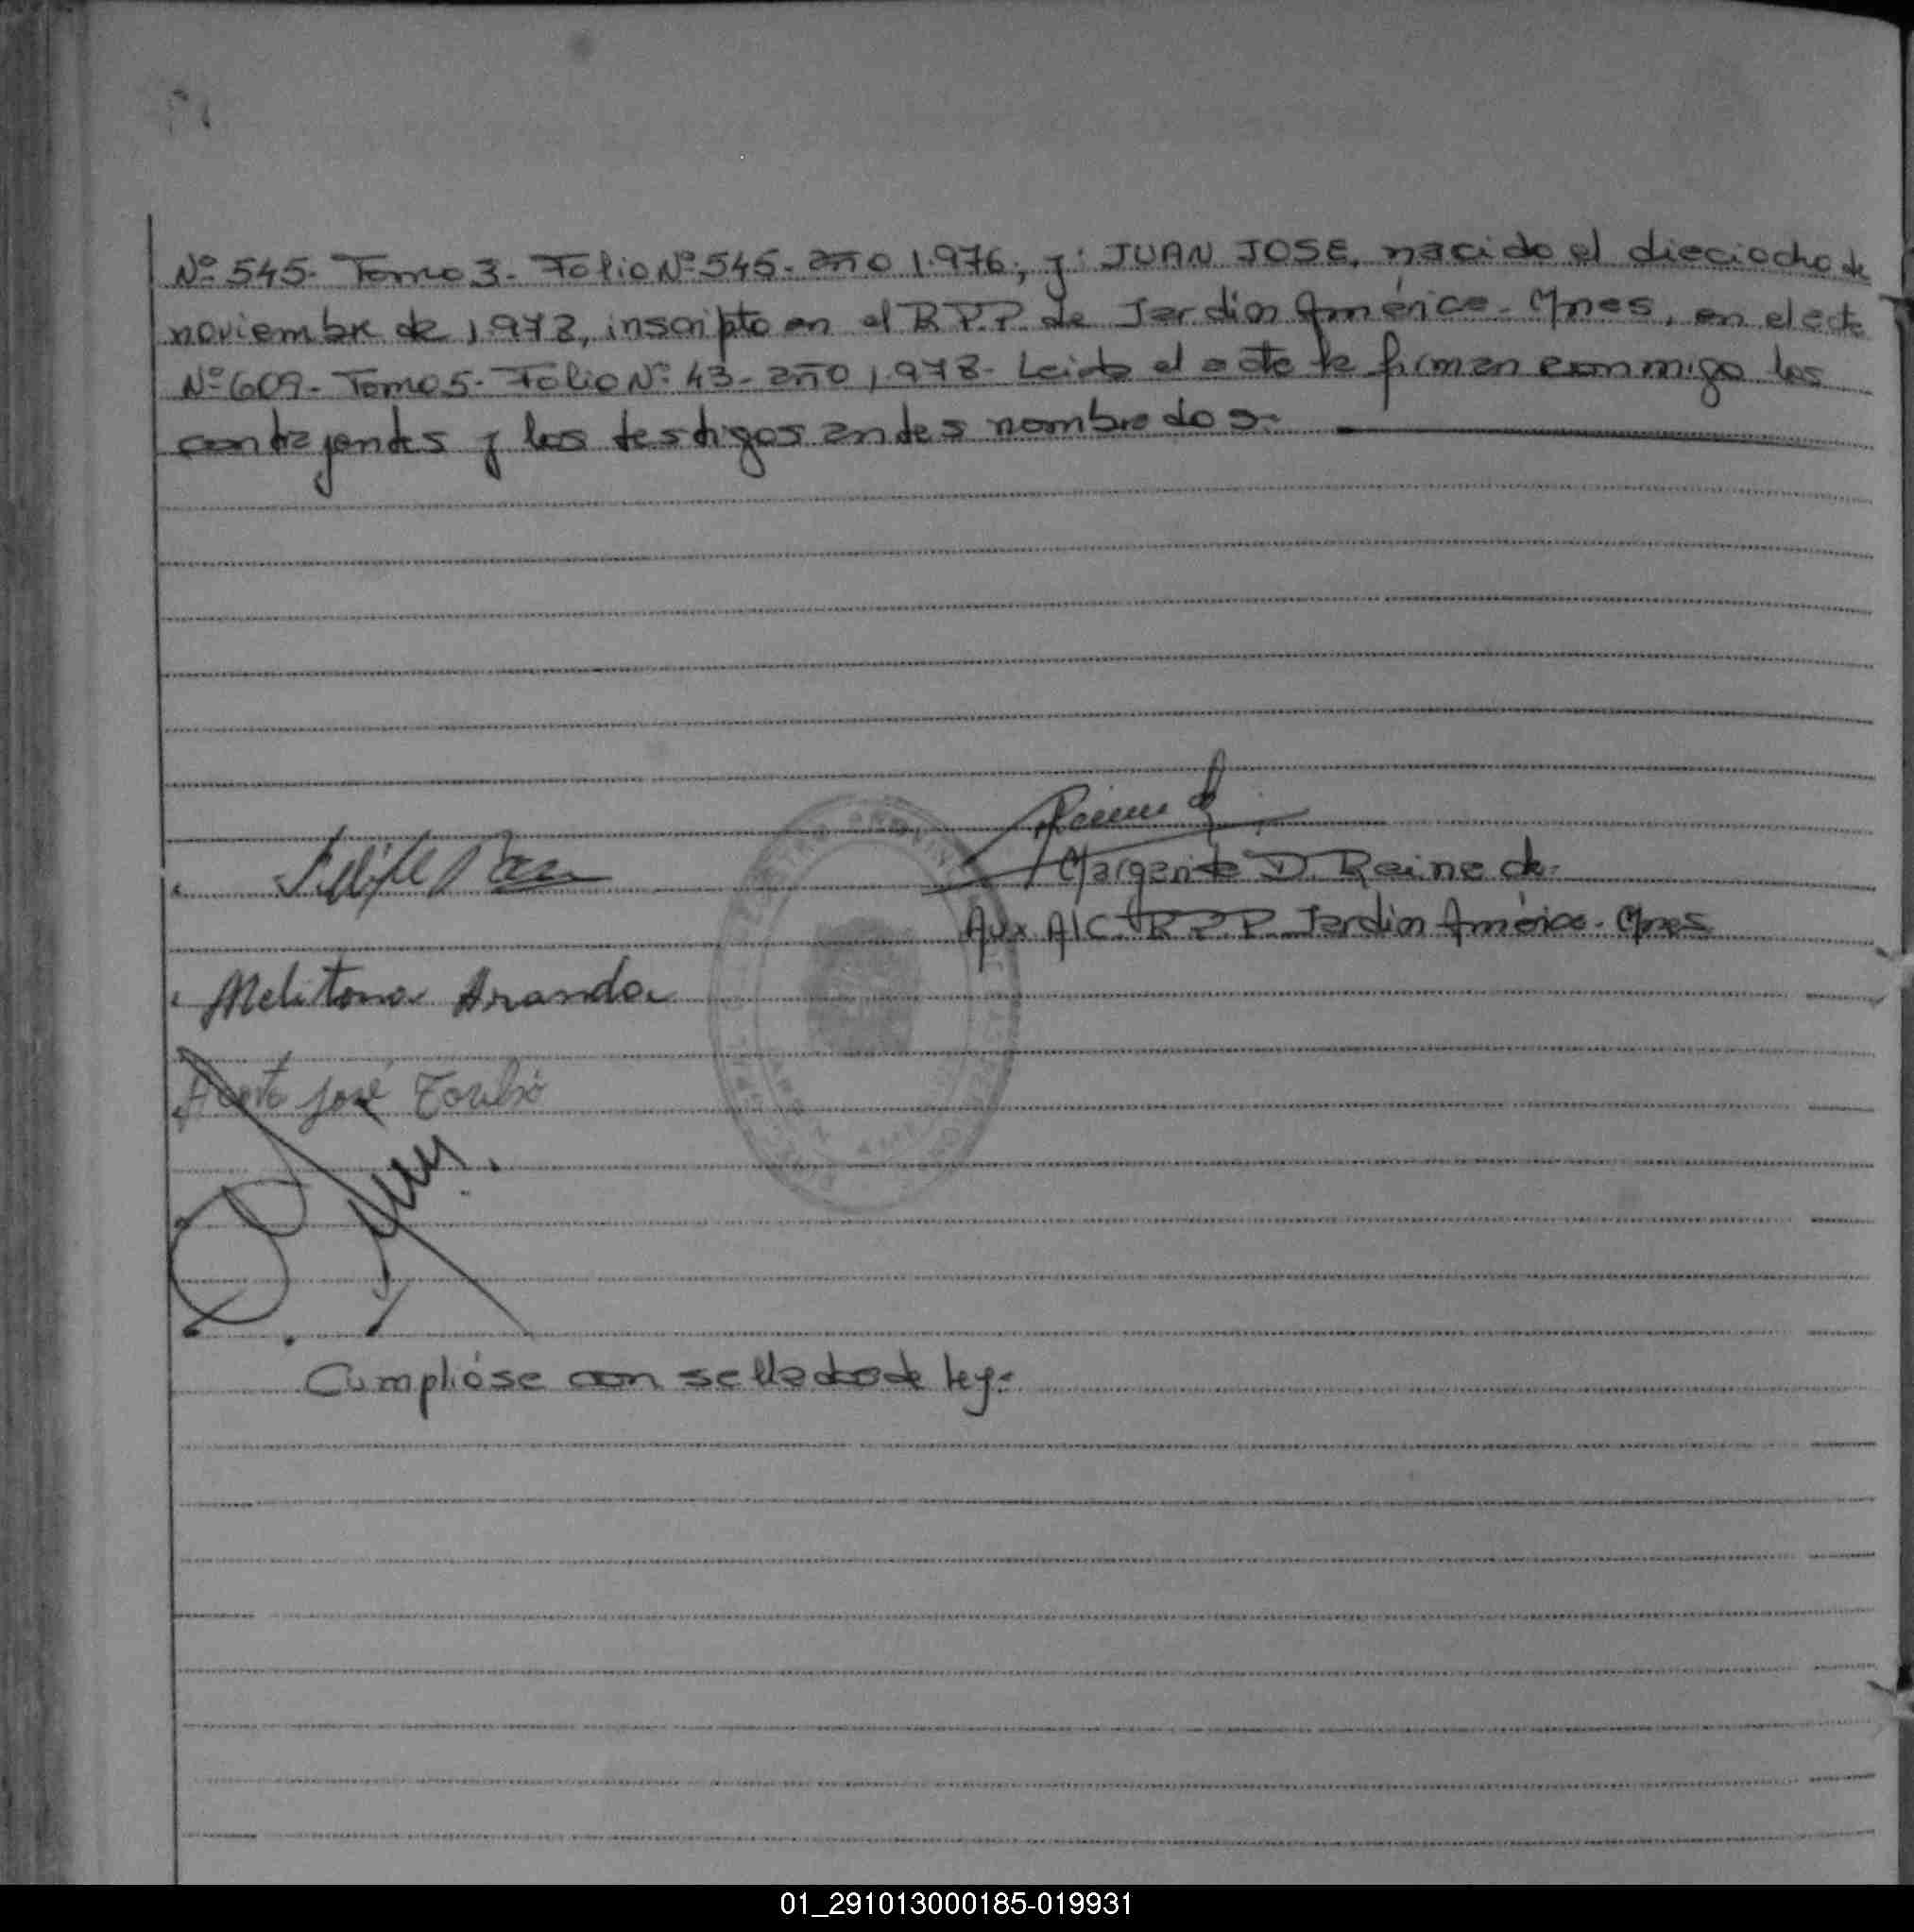 Nº 545- Tomo 3- Folio Nº 545- año 1.976; y: JUAN JOSE, nacido el dieciocho de
noviembre de 1.978, inscripto en el R.P.P. de Jardín América- Mnes, en el acta
Nº 609- Tomo 5- Folio Nº 43- año 1.978- Leída el acta la firman conmigo los
contrayentes y los testigos antes nombrados.-
Margarita D. Reine de-
Aux A/C. R.P.P. Jardín América- Mnes
Melitona Aranda
José Toribio
Cumplióse con sellado de ley.-
01_291013000185-019931